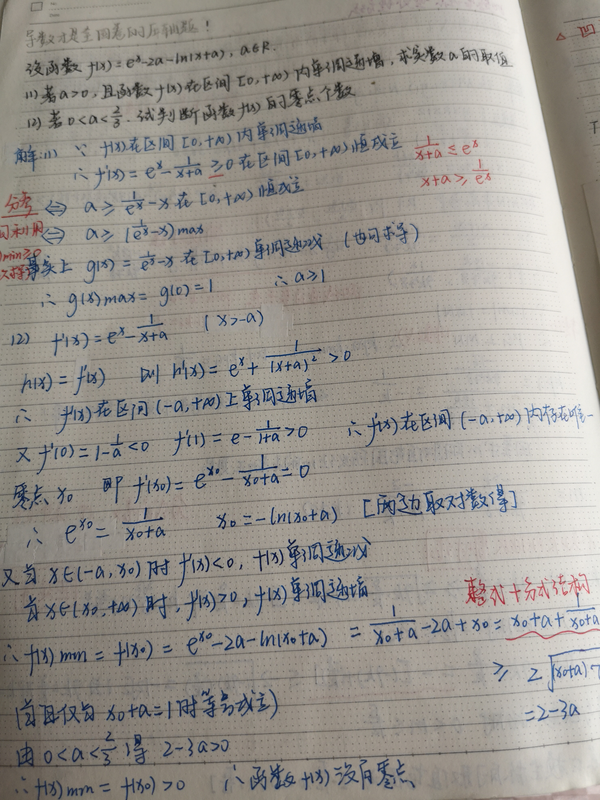 导数才是全国卷的压轴题!
设函数 f(x)=eˣ-2a-ln(x+a), a∈R.
(1) 若a>0, 且函数f(x)在区间[0,+∞)内单调递增, 求实数a的取值
(2) 若0<a<2/3, 试判断函数f(x)的零点个数
解:(1) ∵ f(x)在区间[0,+∞)内单调递增
∴ f'(x)=eˣ-1/(x+a)≥0在区间[0,+∞)恒成立
1/(x+a)≤eˣ
x+a≥1/eˣ
分离 ⇔ a≥1/eˣ-x在[0,+∞)恒成立
⇔ a≥(1/eˣ-x)max
事实上 g(x)=1/eˣ-x在[0,+∞)单调递减 (也可求导)
∴ g(x)max=g(0)=1 ∴a≥1
(2) f'(x)=eˣ-1/(x+a) (x>-a)
h(x)=f'(x) 则 h'(x)=eˣ+1/(x+a)²>0
∴ f'(x)在区间(-a,+∞)上单调递增
又f'(0)=1-1/a<0 f'(1)=e-1/(1+a)>0 ∴f'(x)在区间(-a,+∞)内存在唯一
零点x₀ 即f'(x₀)=e^x₀-1/(x₀+a)=0
∴ e^x₀=1/(x₀+a) x₀=-ln(x₀+a) [两边取对数得]
又当x∈(-a,x₀)时f'(x)<0, f(x)单调递减
当x∈(x₀,+∞)时, f'(x)>0, f(x)单调递增
整式+分式结构
∴ f(x)min=f(x₀)=e^x₀-2a-ln(x₀+a) =1/(x₀+a)-2a+x₀=x₀+a+1/(x₀+a)
≥2√(x₀+a)
(当且仅当x₀+a=1时等号成立)
=2-3a
由0<a<2/3得 2-3a>0
∴f(x)min=f(x₀)>0 ∴函数f(x)没有零点